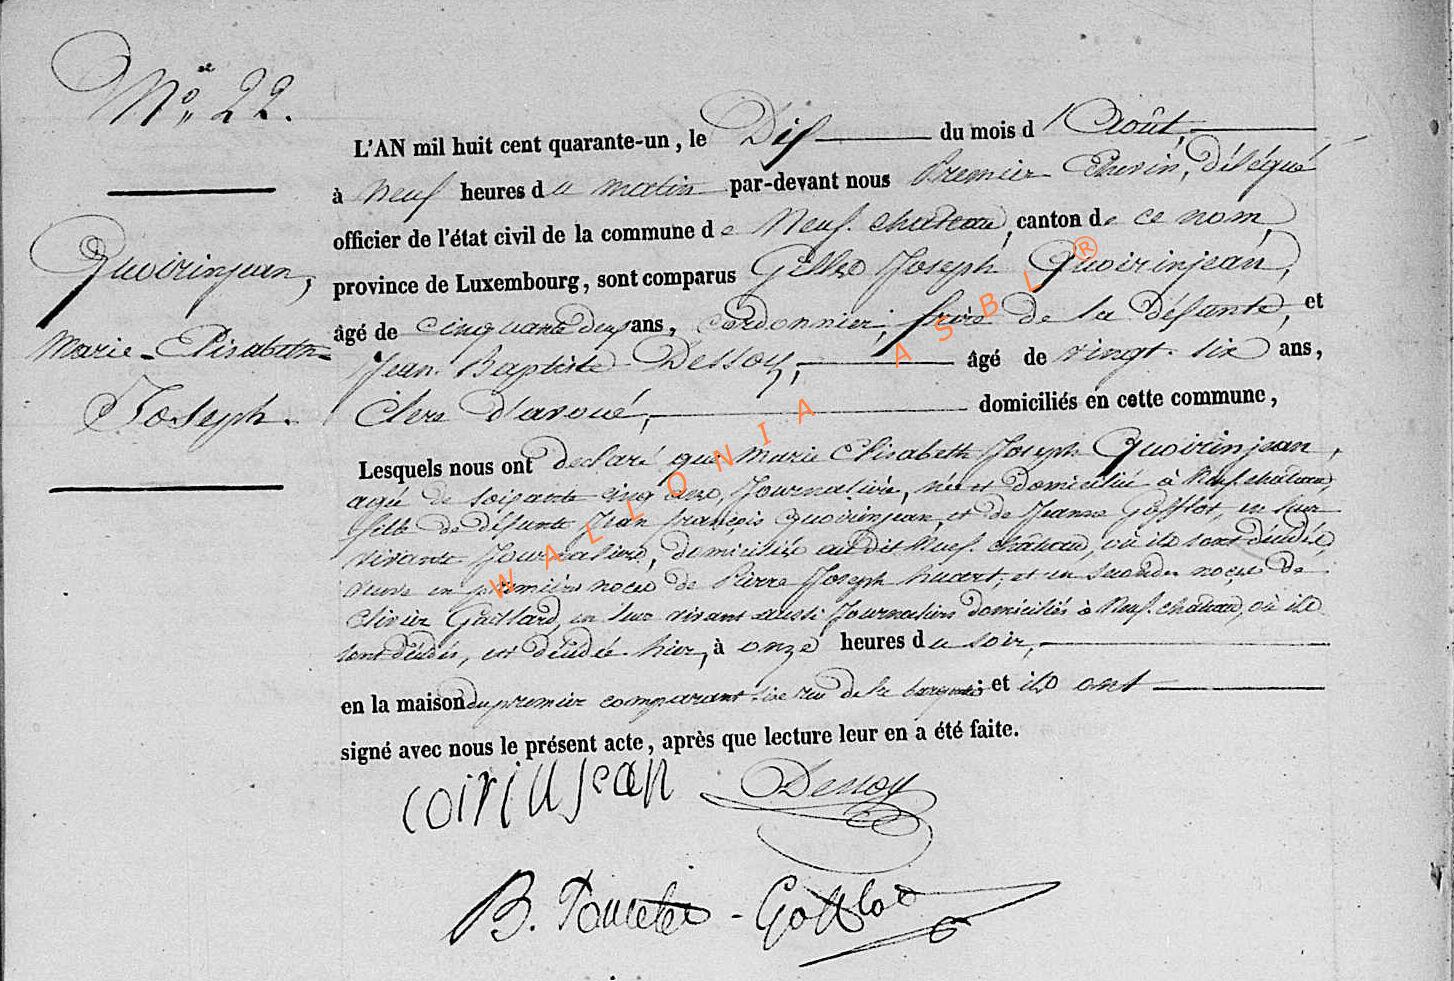 No. 22.
Quoirinjean,
Marie-Elisabeth-
Joseph.
L'AN mil huit cent quarante-un, le Dix du mois d'Août,
à neuf heures du matin par-devant nous Premier Echevin, délégué
officier de l'état civil de la commune de Neufchateau, canton de ce nom,
province de Luxembourg, sont comparus Gilles Joseph Quoirinjean,
âgé de cinquante deux ans, cordonnier, frère de la défunte, et
Jean Baptiste Dessoy, âgé de vingt-six ans,
Clerc d'avoué, domiciliés en cette commune,
Lesquels nous ont declaré que Marie Elisabeth Joseph Quoirinjean,
agée de soixante cinq ans, Journalière, née et domiciliée à Neufchateau,
fille de défunts Jean françois Quoirinjean, et de Jeanne Gofflot, en leur
vivants Journaliers, domiciliés audit Neufchateau, où ils sont décédés,
veuve en premières noces de Pierre Joseph, et en secondes noces de
Olivier Gaillard, en leur vivant aussi Journaliers domiciliés à Neufchateau, où ils
sont décédés, est décédée hier, à onze heures du soir,
en la maison du premier comparant, sise rue de la; et ils ont
signé avec nous le présent acte, après que lecture leur en a été faite.
coirinjean Dessoy
B. Poncelet-Gofflot
WALLONIA ASBL ®